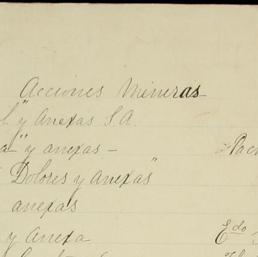 Acciones Mineras
l" y Anexas S.A.
a" y anexas —
Dolores y Anexas"
anexas
y Anexa
Edo